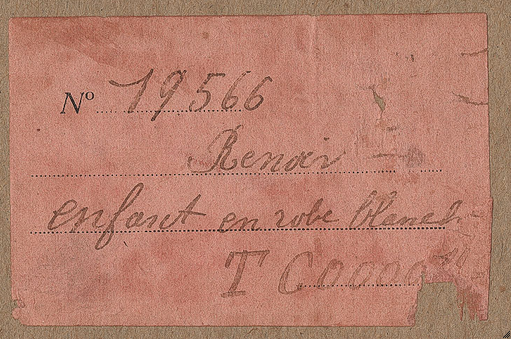 Nº 19566
Renoir
enfant en robe blanch
T